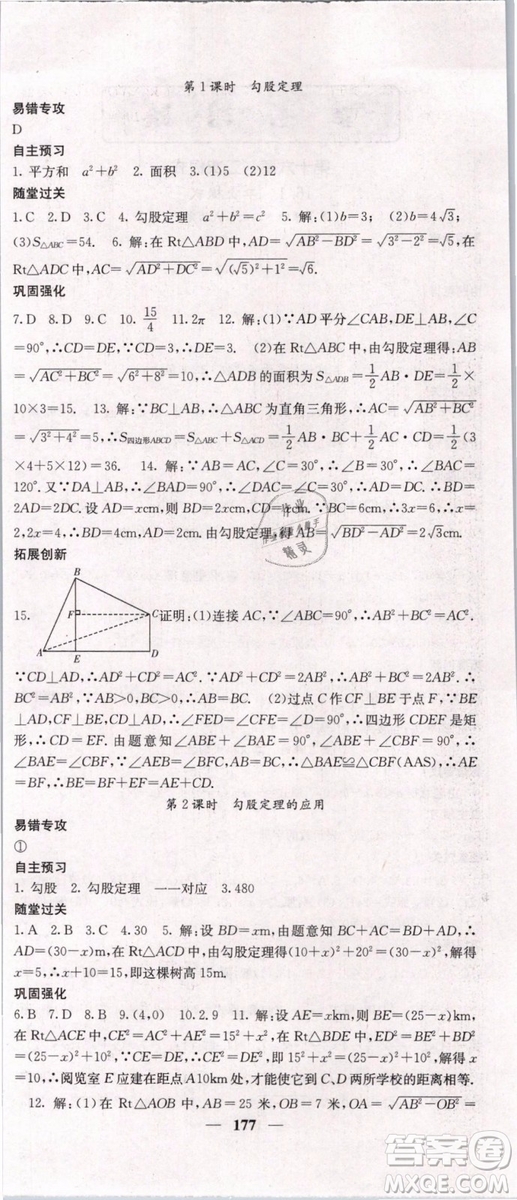 第1课时 勾股定理
易错专攻
D
自主预习
1. 平方和 a²+b² 2. 面积 3.(1)5 (2)12
随堂过关
1.C 2.D 3.D 4. 勾股定理 a²+b²=c² 5. 解:(1)b=3;(2)b=4√3;
(3)S△ABC=54. 6. 解:在 Rt△ABD 中,AD=√(AB²−BD²)=√(3²−2²)=√5,在
Rt△ADC 中,AC=√(AD²+DC²)=√((√5)²+1²)=√6.
巩固强化
7.D 8.D 9.C 10. 15/4 11.2π 12. 解:(1)∵AD 平分∠CAB,DE⊥AB,∠C
=90°,∴CD=DE,∵CD=3,∴DE=3. (2)在 Rt△ABC 中,由勾股定理得 AB
=√(AC²+BC²)=√(6²+8²)=10,∴△ADB 的面积为 S△ADB=1/2 AB·DE=1/2×
10×3=15. 13. 解:∵BC⊥AB,∴△ABC 为直角三角形,∴AC=√(AB²+BC²)
=√(3²+4²)=5,∴S四边形ABCD=S△ABC+S△ACD=1/2 AB·BC+1/2 AC·CD=1/2(3
×4+5×12)=36. 14. 解:∵AB=AC,∠C=30°,∴∠B=∠C=30°,∠BAC=
120°.又∵DA⊥CA,∴∠DAC=90°,∴∠BAD=30°,∴∠B=∠BAD,∴AD=
BD.设 AD=xcm,则 BD=xcm,DC=2xcm.∵BC=6cm,∴3x=6,∴x=
2,2x=4,∴BD=4cm,AD=2cm,由勾股定理,得 AB=√(BD²−AD²)=2√3cm.
拓展创新
B
15. F C 证明:(1)连接 AC,∵∠ABC=90°,∴AB²+BC²=AC².
A E D
∵CD⊥AD,∴AD²+CD²=AC².∵AD²+CD²=2AB²,∴AB²+BC²=2AB²,
∴AB²=BC².∵AB>0,BC>0,∴AB=BC. (2)过点 C 作 CF⊥BE 于点 F,∵BE
⊥AD,CF⊥BE,CD⊥AD,∴∠FED=∠CFE=∠D=90°,∴四边形 CDEF 是矩
形,∴CD=EF.由题意知∠ABE+∠BAE=90°,∠ABE+∠CBF=90°,∴
∠BAE=∠CBF.又∵AB=BC,∠BEA=∠CFB,∴△BAE≌△CBF(AAS),∴AE
=BF,∴BE=BF+EF=AE+CD.
第2课时 勾股定理的应用
易错专攻
①
自主预习
1. 勾股 2. 勾股定理 一一对应 3.480
随堂过关
1.A 2.B 3.C 4.30 5. 解:设 BD=xm,由题意知 BC+AC=BD+AD,∴
AD=(30−x)m,在 Rt△ACD 中,由勾股定理得(10+x)²+20²=(30−x)²,解得
x=5,∴x+10=15,即这棵树高 15m.
巩固强化
6.B 7.D 8.B 9.(4,0) 10.2.9 11. 解:设 AE=xkm,则 BE=(25−x)km,
在 Rt△ACE 中,CE²=AC²+AE²=15²+x²,在 Rt△BDE 中,ED²=BE²+BD²
=(25−x)²+10².由题意知 CE=ED,∴CE²=ED²,∴15²+x²=(25−x)²+10²,解得 x
=10,∴阅览室 E 应建在距点 A10km 处,才能使它到 C、D 两所学校的距离相等.
12. 解:(1)在 Rt△AOB 中,AB=25 米,OB=7 米,OA=√(AB²−OB²)=
177
作业
精灵
答案圈
MXQE.COM